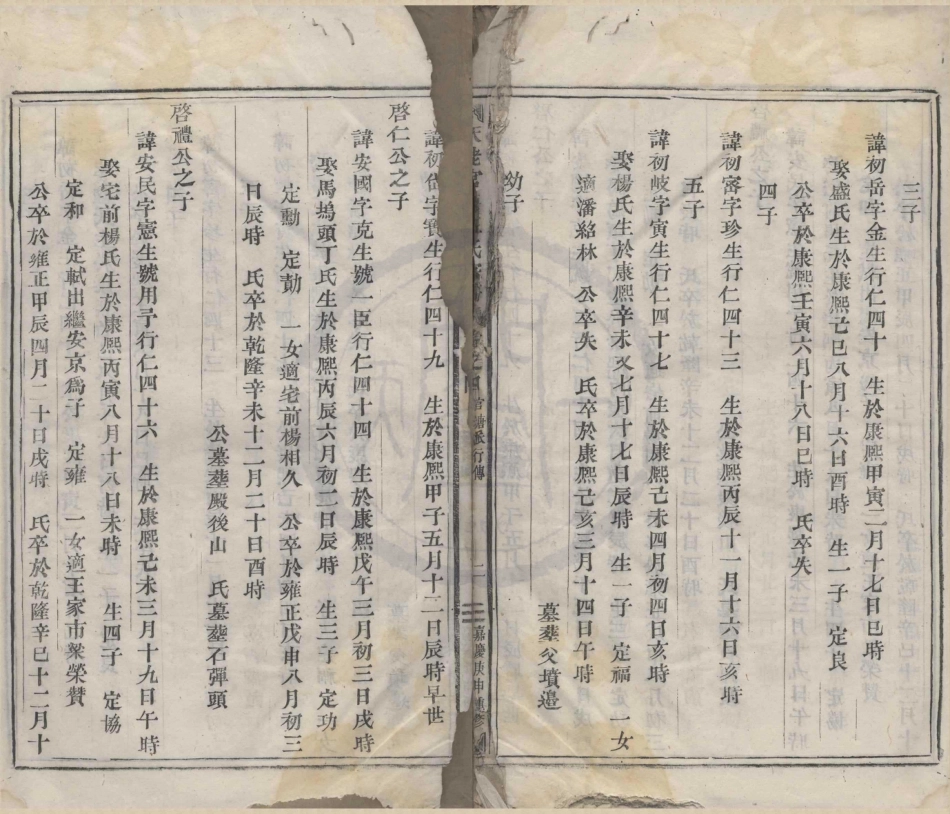 三子
諱初岳字金生行仁四十　生於康熙甲寅二月十七日巳時
娶盛氏生於康熙己巳八月十六日酉時　生一子　定良
公卒於康熙壬寅六月十八日巳時　氏卒失
四子
諱初審字珍生行仁四十三　生於康熙丙辰十一月十六日亥時
五子
諱初岐字寅生行仁四十七　生於康熙己未四月初四日亥時
娶楊氏生於康熙辛未又七月十七日辰時　生一子　定福　一女
適潘紹林　公卒失　氏卒於康熙己亥三月十四日午時
墓塟父墳邉
幼子
天　官　氏　四　官塘派行傳　二　嘉慶庚申　修
諱初　字寳生行仁四十九　生於康熙甲子五月十二日辰時早世
啓仁公之子
諱安國字克生號一臣行仁四十四　生於康熙戊午三月初三日戌時
娶馬塢頭丁氏生於康熙丙辰六月初二日辰時　生三子　定功
定勳　定勣　一女適宅前楊相久　公卒於雍正戊申八月初三
日辰時　氏卒於乾隆辛未十二月二十日酉時
公墓塟殿後山　氏墓塟石彈頭
啓禮公之子
諱安民字憲生號用予行仁四十六　生於康熙己未三月十九日午時
娶宅前楊氏生於康熙丙寅八月十八日未時　生四子　定協
定和　定軾出繼安京爲子　定雍　一女適王家市梁榮贊
公卒於雍正甲辰四月二十日戌時　氏卒於乾隆辛巳十二月十